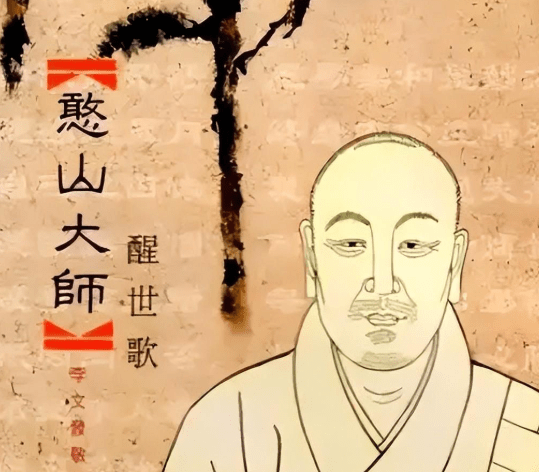 憨山大師
醒世歌